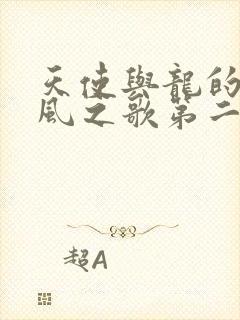 天使與龍的
風之歌第二
超A